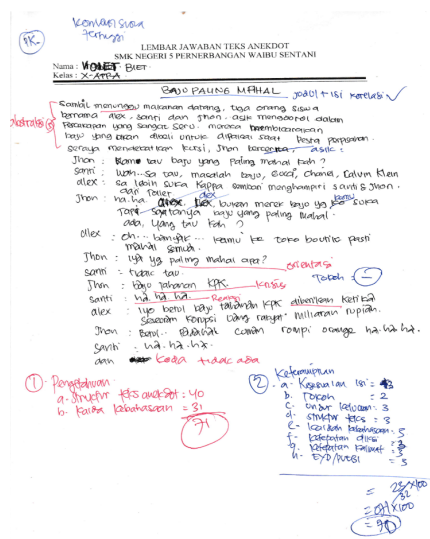 Komentar
tertinggi
LEMBAR JAWABAN TEKS ANEKDOT
SMK NEGERI 5 PERNERBANGAN WAIBU SENTANI
Nama : VIOLET BLET.
Kelas : X-APRA
BAJU PALING MAHAL
judul + isi korelasi ✓
Sambil menunggu makanan datang, tiga orang siswa
bernama alex, santi dan Jhon. asik mengobrol dalam
percakapan yang sangat seru. mereka membicarakan
baju yang akan dibeli untuk dipakai saat Pesta perpisahan.
seraya mendekatkan kursi, Jhon bercerita, asik:
Jhon : kamu tau baju yang paling mahal kah?
santi : wah.. sa tau, masalah baju, Gucci, Chanel, Calvin Klein
alex : sa lebih suka Kappa sambari menghampri santi & Jhon.
dari Toilet
Jhon : ha.ha. alex, bukan merek baju yg ko suka
Tapi sejatanya baju yang paling mahal.
ada, yang tau kah?
alex : oh... banyak... kamu ke toko boutiq pasti
mahal semua.
Jhon : iya yg paling mahal apa?
orientasi
santi : tidak tau.
Jhon : baju tahanan KPK.
krisis
Tokoh =
santi : ha. ha. ha.
Reaksi
alex : iyo betul baju tahanan KPK diberikan ketika
seseorang korupsi uang rakyat milliaran rupiah.
Jhon : Betul.. cuman rompi orange ha.ha.ha.
Santi : ha.ha.ha.
dan
Koda tidak ada
1 Pengetahuan :
a. struktur teks anekdot : 40
b. kaida kebahasaan = 31
71
2 Keterampilan
a. Kesesuaian isi : 3
b. Tokoh = 2
c. = 3
d. struktur teks = 3
e. kaidah kebahasaan = 3
f. ketepatan diksi
g. ketepatan kalimat = 3
h. EYD/PUEBI = 3
= 23/32 x 100
= 0,71 x 100